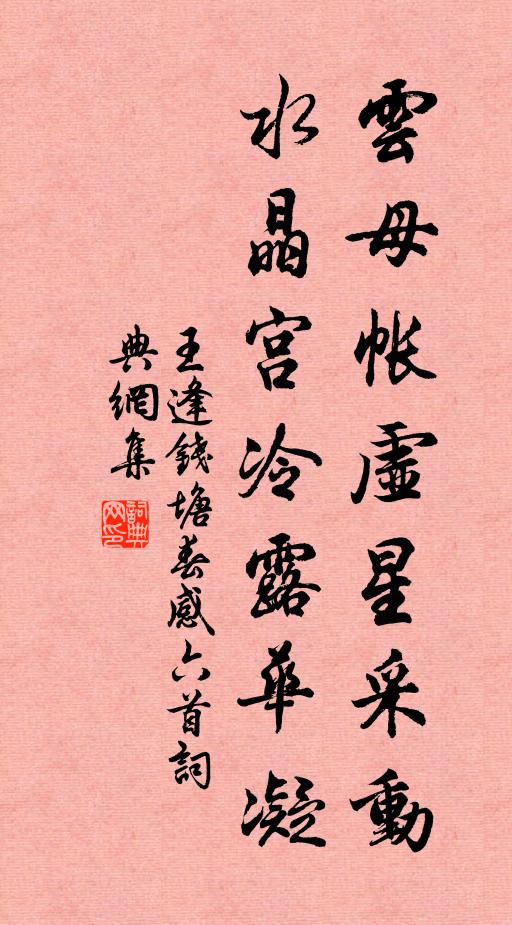 雲母帐虛星采動
水晶宫冷露華凝
王逢錢塘春感六首詞
典網集
詞典网印